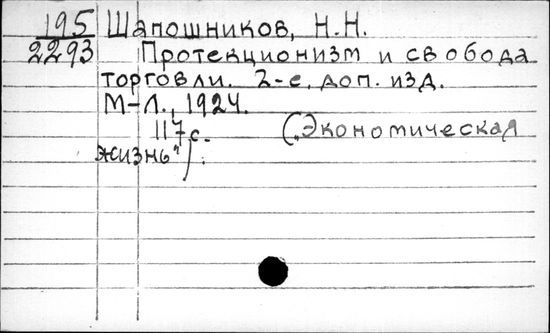 195 Шапошников, Н.Н.
2293 Протекционизм и свобода
торговли. 2-е, доп. изд.
М-Л., 1924.
117с. („Экономическая
жизнь").